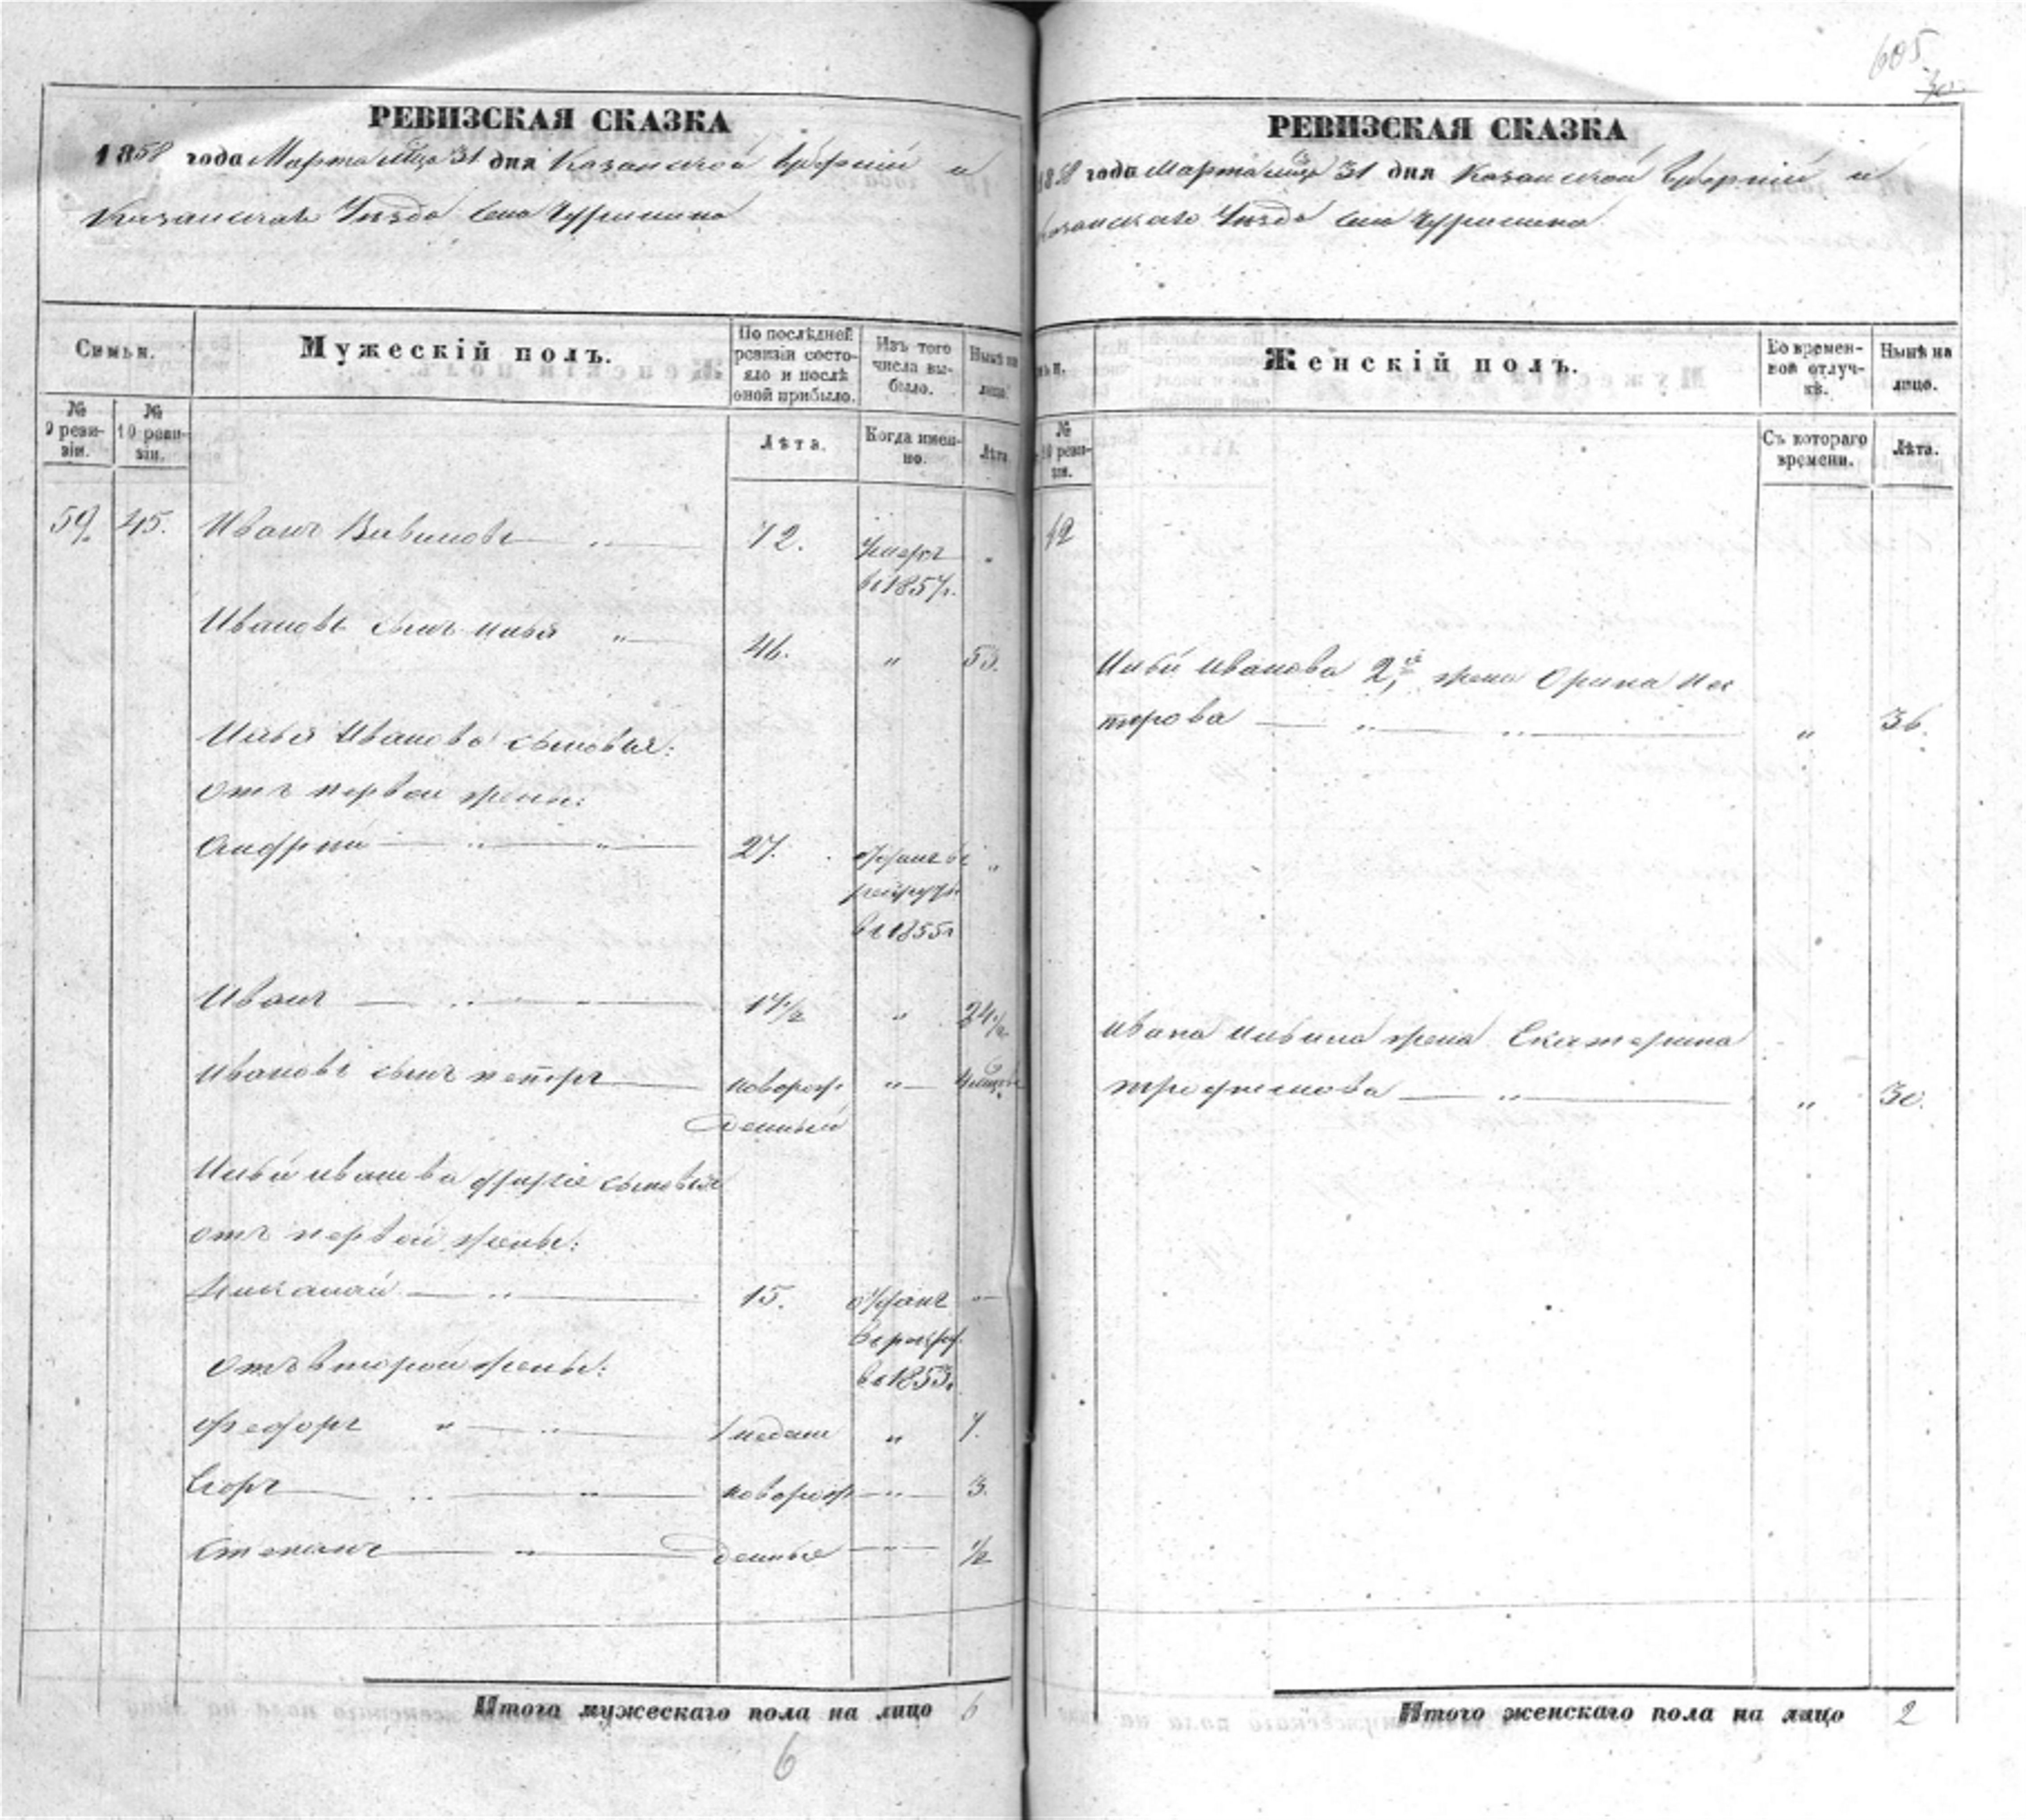 605
30
РЕВИЗСКАЯ СКАЗКА
1858 года Марта мца 31 дня Казанской Губерніи и
Казанскаго Уезда села
Семьи.
Мужескій полъ.
По послѣдней ревизіи состояло и послѣ оной прибыло.
Изъ того числа выбыло.
Нынѣ на лицо.
№ 9 ревизіи.
№ 10 ревизіи.
Лѣта.
Когда именно.
Лѣта
59. 45. Иванъ Вавиловъ 72. умеръ
въ 1857г.
Ивановъ сынъ Илья " 46. " 53.
Ильи Иванова сыновья:
отъ первой жены:
Андрей 27. отданъ въ "
рекруты
въ 1855г
Иванъ 17 1/2 " 24 1/2
Ивановъ сынъ петръ новорож " 4 мцовъ
денный
Ильи иванова другіе сыновья
отъ первой жены:
Николай 15. отданъ "
въ рекрут.
отъ второй жены: въ 1853.
Федоръ " 1 недели " 7.
Егоръ новорож " 3.
Степанъ " денные " 1/2
Итого мужескаго пола на лицо 6
6
РЕВИЗСКАЯ СКАЗКА
1858 года Марта мца 31 дня Казанской Губерніи и
Казанскаго Уезда села
ьи.
Женскій полъ.
Во временной отлучкѣ.
Нынѣ на лицо.
№ 10 ревизіи.
Съ котораго времени.
Лѣта.
Ильи Иванова 2я жена Орина Нес
терова " " " 36.
Ивана Ильина жена Екатерина
трофимова " " 30.
Итого женскаго пола на лицо 2